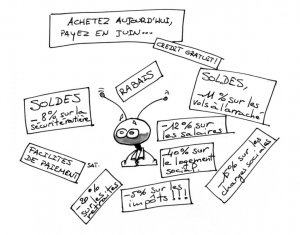 ACHETEZ AUJOURD'HUI,
PAYEZ EN JUIN...
CREDIT GRATUIT!
RABAIS
SOLDES
-8% sur la
sécurité routière
SOLDES,
-11% sur les
vols à l'arrache
-12% sur
les salaires
FACILITES
DE PAIEMENT
SAT.
-40% sur
le logement
social
-20%
sur les
retraites
-5% sur les
impôts!!!
sur les
charges sociales